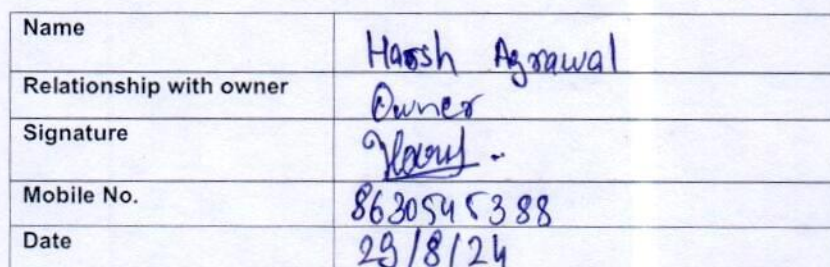 Name Harsh Agrawal
Relationship with owner Owner
Signature
Mobile No. 8630545388
Date 29/8/24